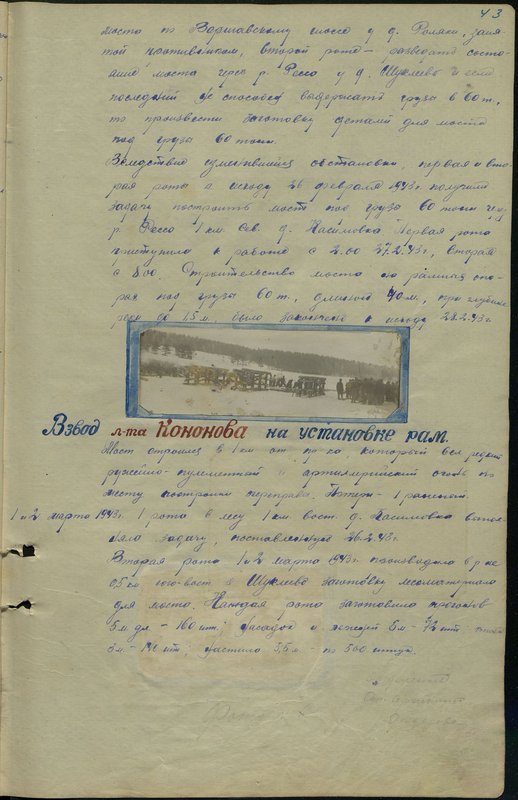 43
моста по Варшавскому шоссе у д. Фоляки, заня-
той противником, второй роте – разведать состо-
яние моста через р. Рессо у д. Шуклеево и если
последний не способен выдержать груза в 60 т.,
то произвести заготовку деталей для моста
под груза 60 тонн.
Вследствие изменившейся обстановки первая и вто-
рая рота к исходу 26 февраля 1943г. получили
задачу построить мост под груза 60 тонн чер.
р. Рессо 1 км. сев. д. Касимовка. Первая рота
приступила к работе с 2.00 27.2.43г., вторая
с 8.00. Строительство моста на рамных опо-
рах под груза 60 т., длиной 40 м., при глубине
реки до 1,5 м. было закончено к исходу 28.2.43г.
Взвод л-та Кононова на установке рам.
Мост строился в 1 км от пр-ка, который вел редкий
ружейно-пулеметный и артиллерийский огонь по
месту постройки переправы. Потери – 1 раненый.
1 и 2 марта 1943г. 1 рота в лесу 1 км. вост. д. Касимовка выпол-
няла задачу, поставленную 26.2.43г.
Вторая рота 1 и 2 марта 1943г. производила в р-не
0,5 км юго-вост. д. Шуклеево заготовку лесоматериала
для моста. Каждая рота заготовила прогонов
5 м дл. – 160 шт; насадок и лежней 5 м – 72 шт;
3 м. – шт; настила 5,5 м – по 500 штук.